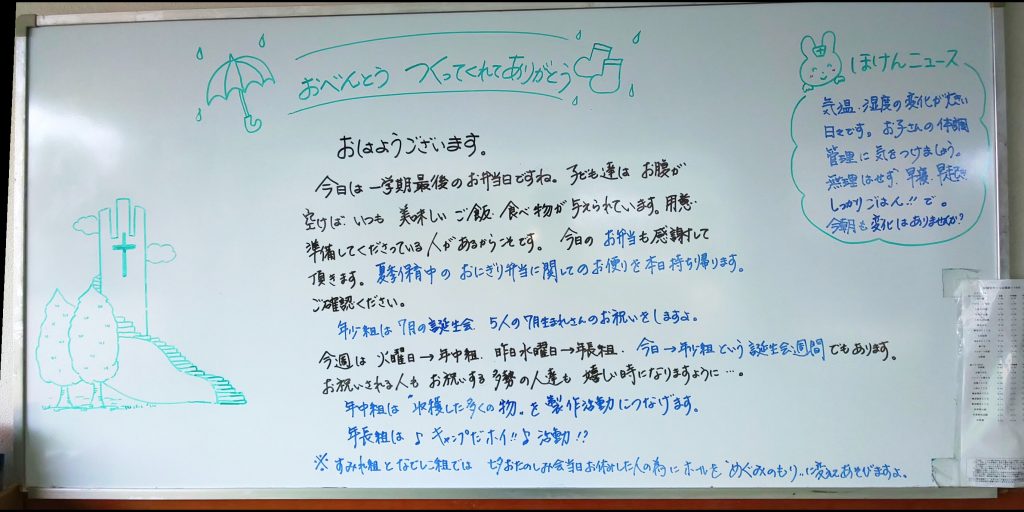 おべんとう つくってくれてありがとう
おはようございます。
今日は一学期最後のお弁当日ですね。子ども達は お腹が
空けば、いつも 美味しい ご飯・食べ物が与えられています。用意・
準備してくださっている人があるからこそです。 今日の お弁当も感謝して
頂きます。夏季保育中の おにぎり弁当に関してのお便りを本日持ち帰ります。
ご確認ください。
年少組は7月の誕生会 5人の7月生まれさんのお祝いをしますよ。
今週は 火曜日→年中組、昨日水曜日→年長組、今日→年少組という誕生会週間でもあります。
お祝いされる人も お祝いする 多勢の人達も 嬉しい時になりますように…。
年中組は“収穫した多くの物”を製作活動につなげます。
年長組は♪キャンプだホイ!!♪活動!?
※すみれ組となでしこ組では 七夕おたのしみ会当日お休みした人の為にホールを“めぐみのもり”に変えてあそびますよ。
ほけんニュース
気温・湿度の変化が大きい
日々です。お子さんの体調
管理に気をつけましょう。
無理はせず、早寝・早起き
しっかりごはん!!で。
今朝も変化はありませんか?